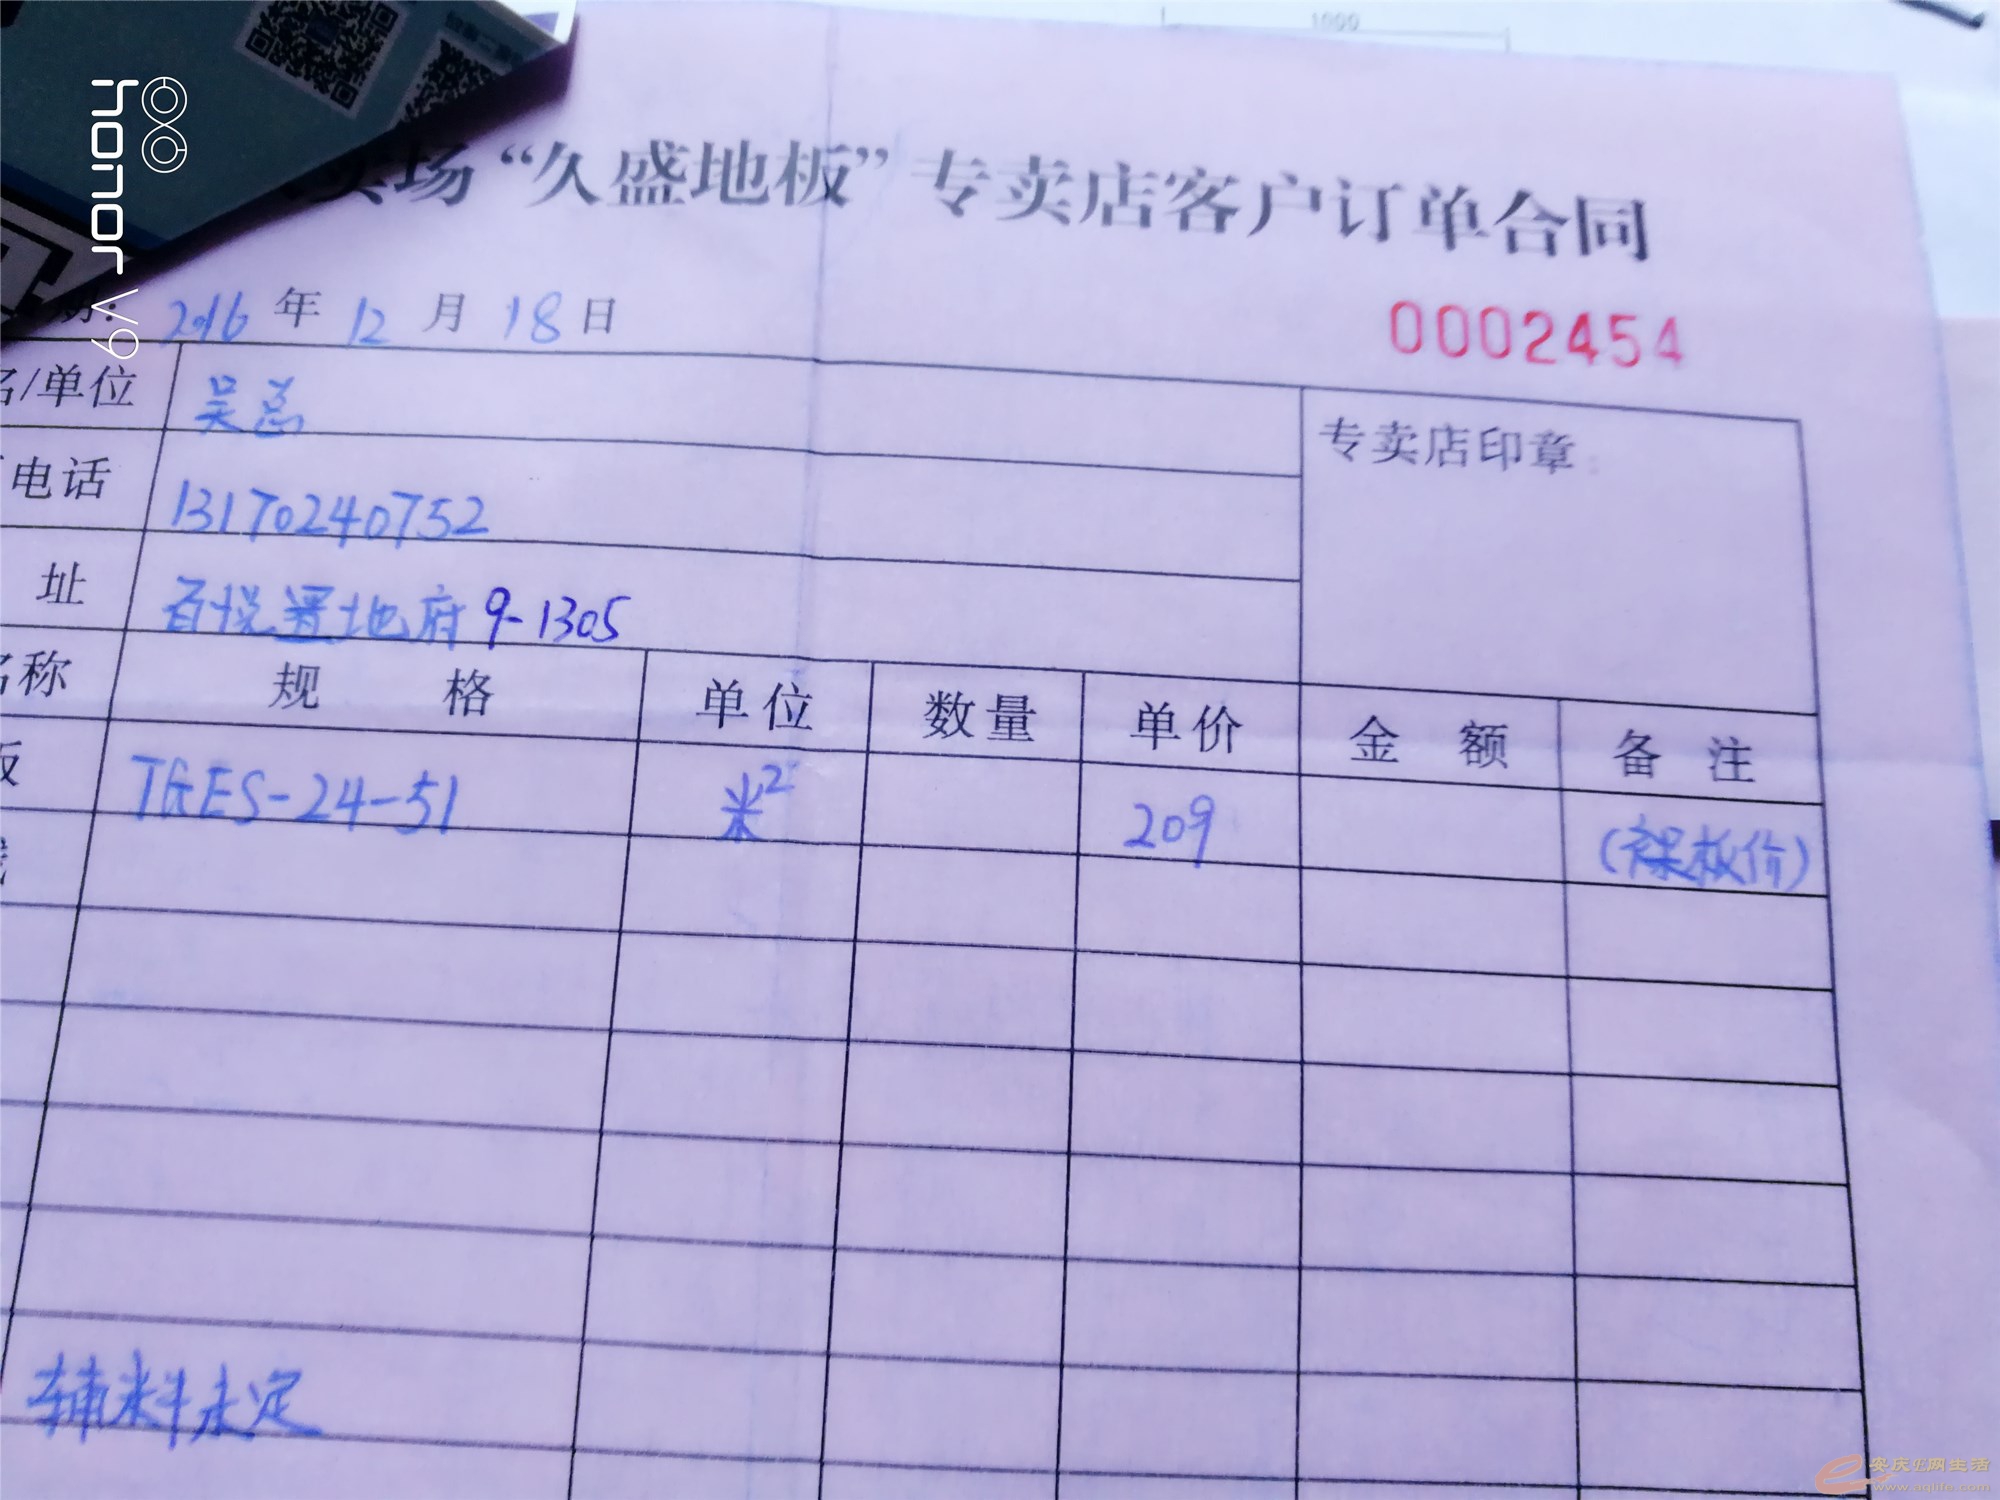 1000
honor V9
场“久盛地板”专卖店客户订单合同
期: 2016年12月18日
0002454
名/单位 吴总
专卖店印章
电话 13170240752
址 百悦置地府9-1305
名称 规格 单位 数量 单价 金额 备注
板 TGES-24-51 米² 209 (裸板价)
辅料未定
安庆E网生活
www.aqlife.com